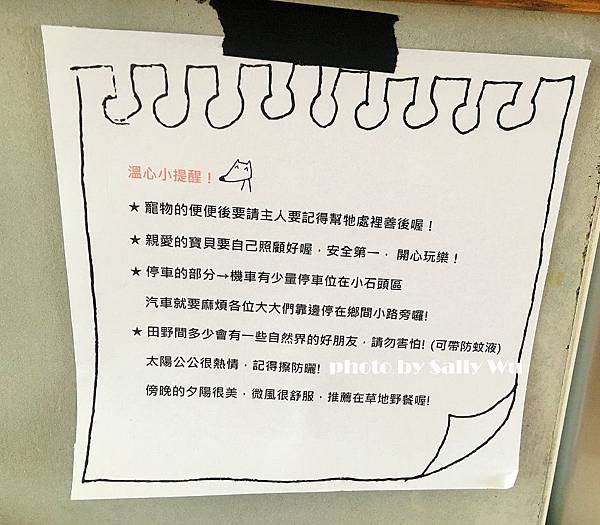 溫心小提醒！
★ 寵物的便便後要請主人要記得幫牠處裡善後喔！
★ 親愛的寶貝要自己照顧好喔，安全第一，開心玩樂！
★ 停車的部分→機車有少量停車位在小石頭區
汽車就要麻煩各位大大們靠邊停在鄉間小路旁囉!
★ 田野間多少會有一些自然界的好朋友，請勿害怕! (可帶防蚊液)
太陽公公很熱情，記得擦防曬!
photo by Sally Wu
傍晚的夕陽很美，微風很舒服，推薦在草地野餐喔!